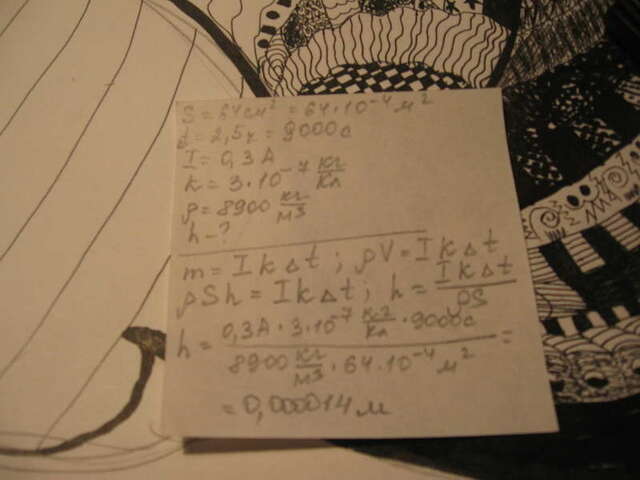 S = 64 см² = 64·10⁻⁴ м²
t = 2,5 ч = 9000 с
I = 0,3 А
k = 3·10⁻⁷ кг/Кл
ρ = 8900 кг/м³
h - ?
m = I k Δt ; ρV = I k Δt
ρSh = I k Δt ; h = I k Δt / ρS
h = 0,3А · 3·10⁻⁷ кг/Кл · 9000с / 8900 кг/м³ · 64·10⁻⁴ м² =
= 0,000014 м